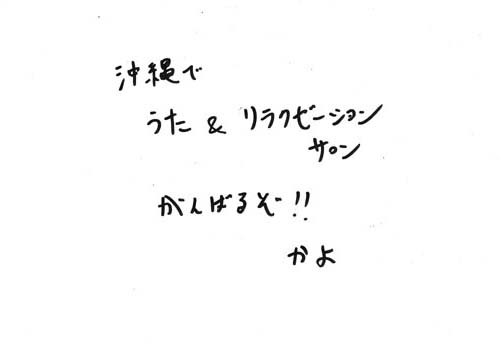 沖縄で
うた & リラクゼーション
サロン
がんばるぞ!!
かよ